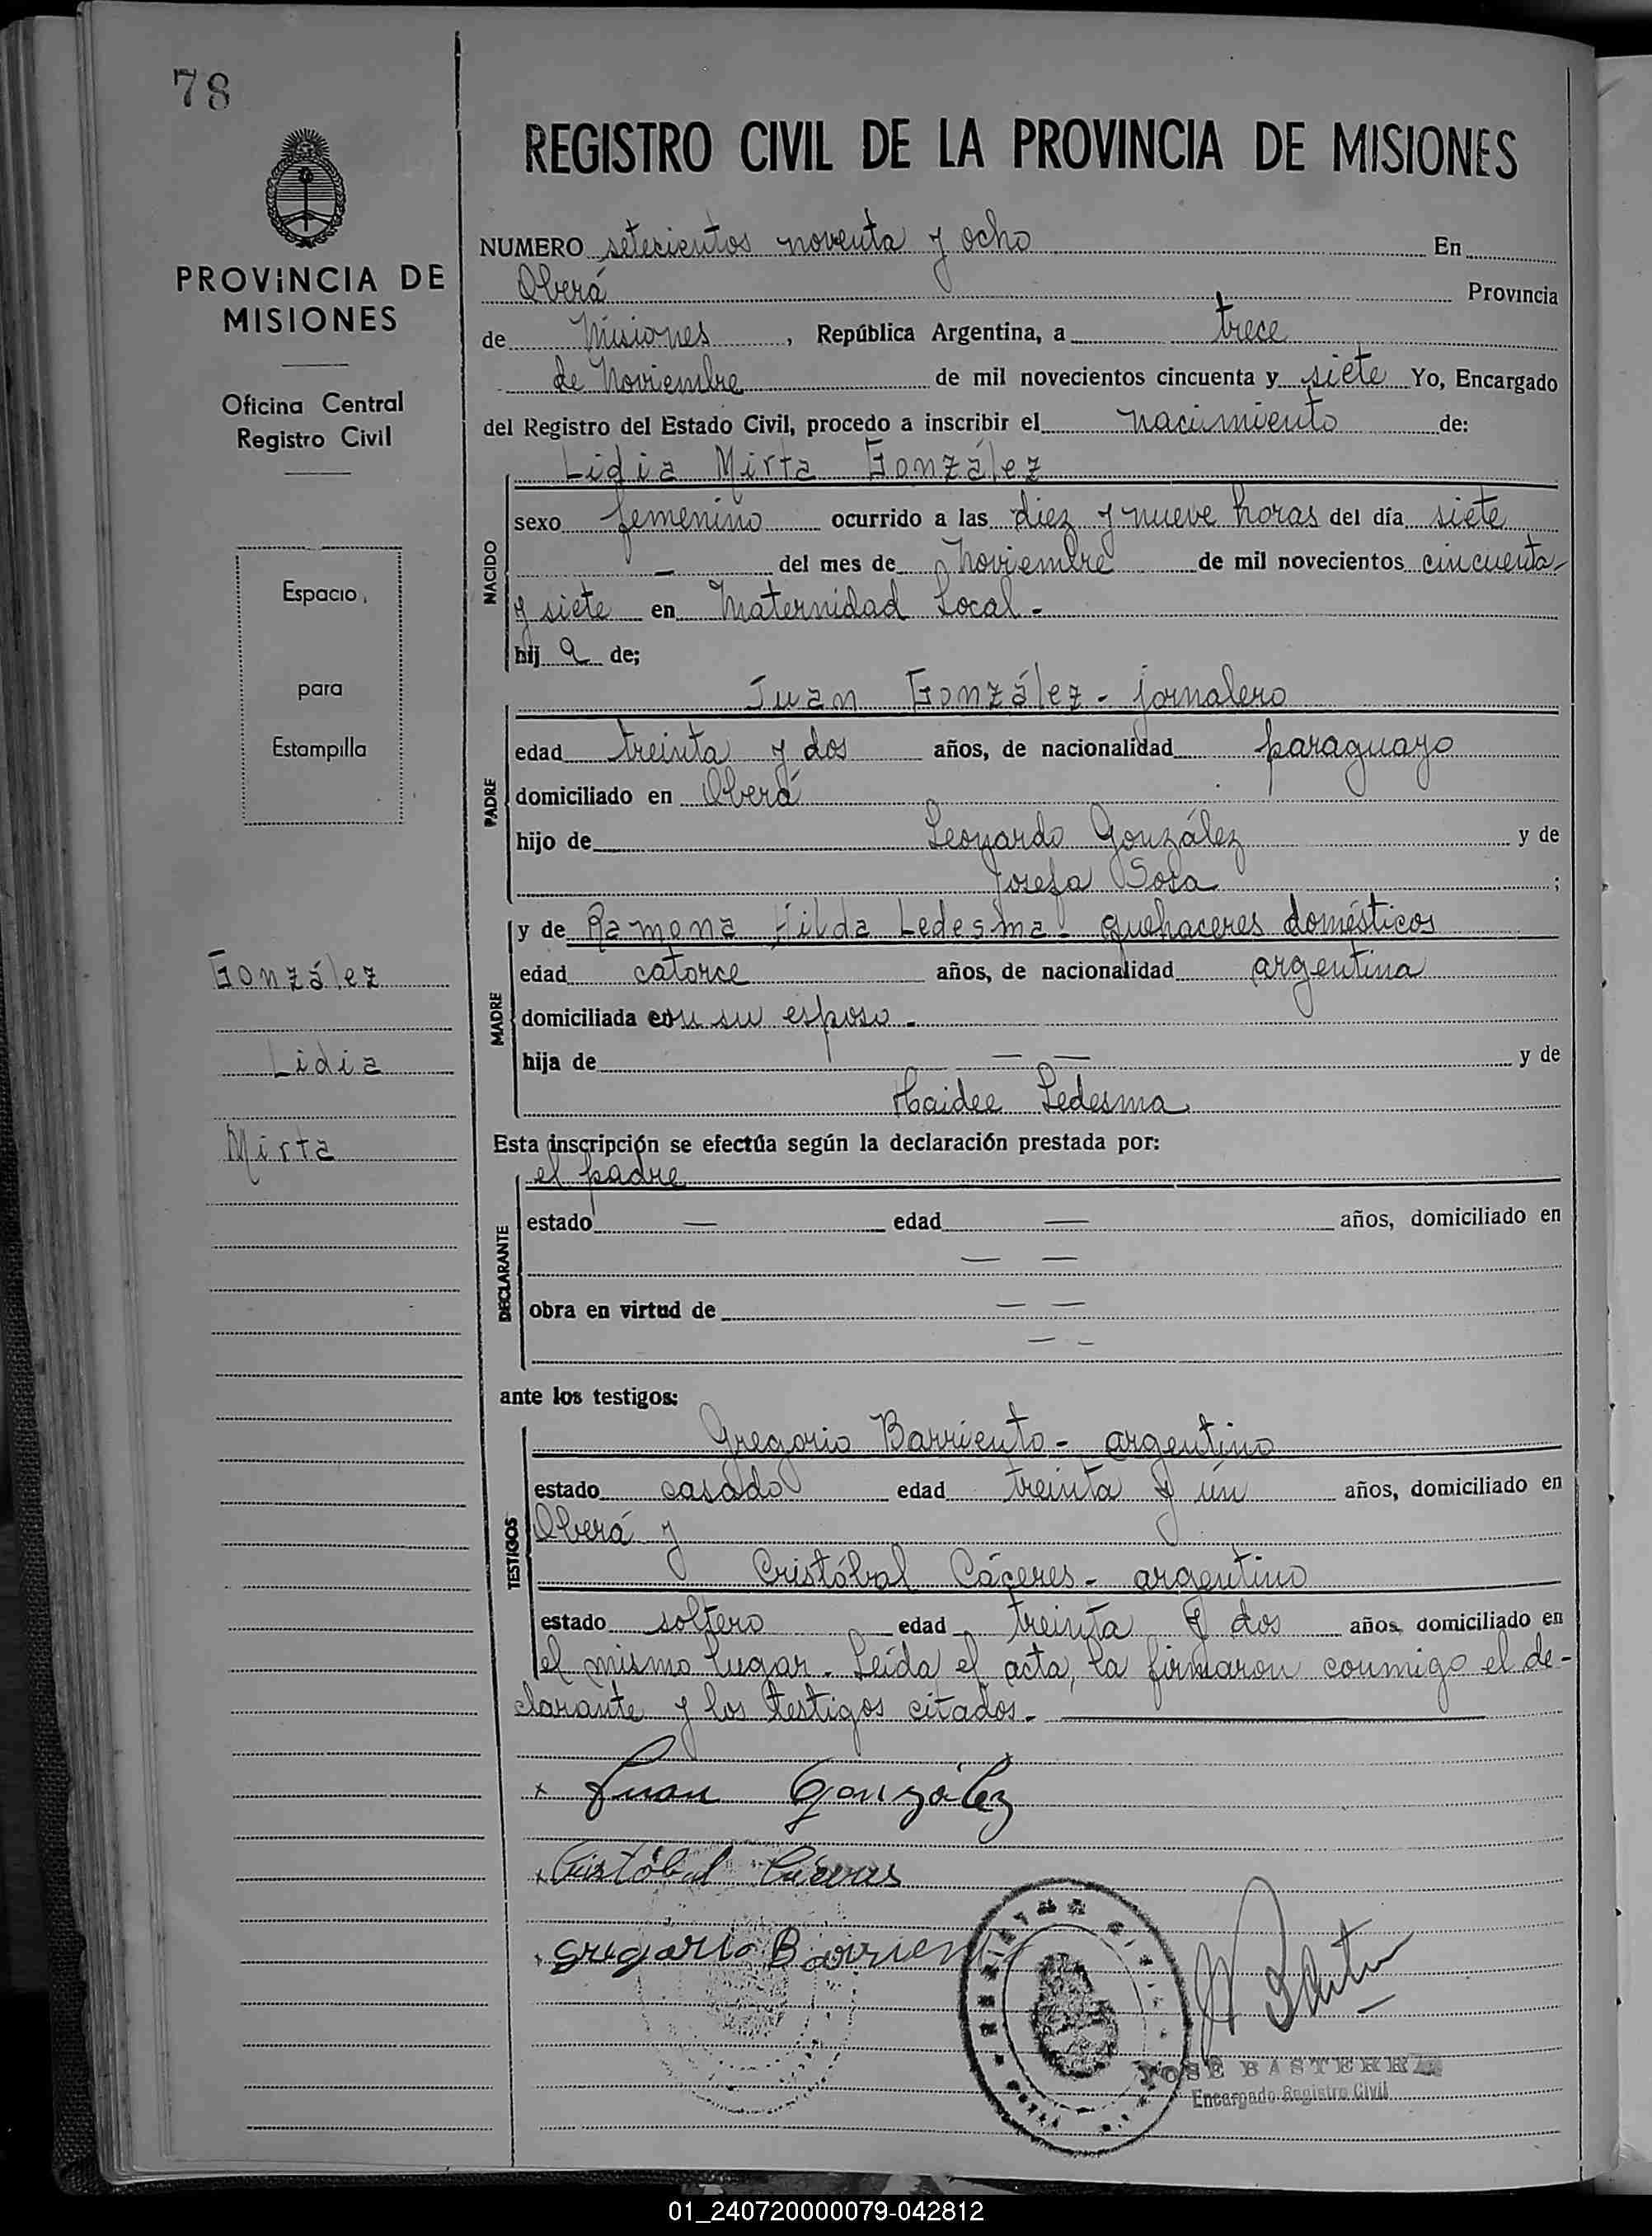 78
REGISTRO CIVIL DE LA PROVINCIA DE MISIONES
PROVINCIA DE
MISIONES
Oficina Central
Registro Civil
Espacio
para
Estampilla
González
Lidia
Mirta
NUMERO setecientos noventa y ocho En
Oberá Provincia
de Misiones, República Argentina, a trece
de Noviembre de mil novecientos cincuenta y siete Yo, Encargado
del Registro del Estado Civil, procedo a inscribir el nacimiento de:
Lidia Mirta González
NACIDO
sexo femenino ocurrido a las diez y nueve horas del día siete
— del mes de Noviembre de mil novecientos cincuenta
y siete en Maternidad Local.-
hij a de;
Juan González - jornalero
PADRE
edad treinta y dos años, de nacionalidad paraguayo
domiciliado en Oberá
hijo de Leonardo González y de
Josefa Sosa ;
y de Ramona Hilda Ledesma - quehaceres domésticos
MADRE
edad catorce años, de nacionalidad argentina
domiciliada con su esposo.-
hija de — — y de
Haidee Ledesma
Esta inscripción se efectúa según la declaración prestada por:
el padre
DECLARANTE
estado — edad — años, domiciliado en
— —
obra en virtud de — —
— -
ante los testigos:
Gregorio Barriento - argentino
TESTIGOS
estado casado edad treinta y ún años, domiciliado en
Oberá y
Cristóbal Cáceres - argentino
estado soltero edad treinta y dos años, domiciliado en
el mismo lugar. Leída el acta, la firmaron conmigo el de-
clarante y los testigos citados.-
x Juan González
x Cristóbal
Gregorio Barrient
JOSE BASTERRA
Encargado Registro Civil
01_240720000079-042812